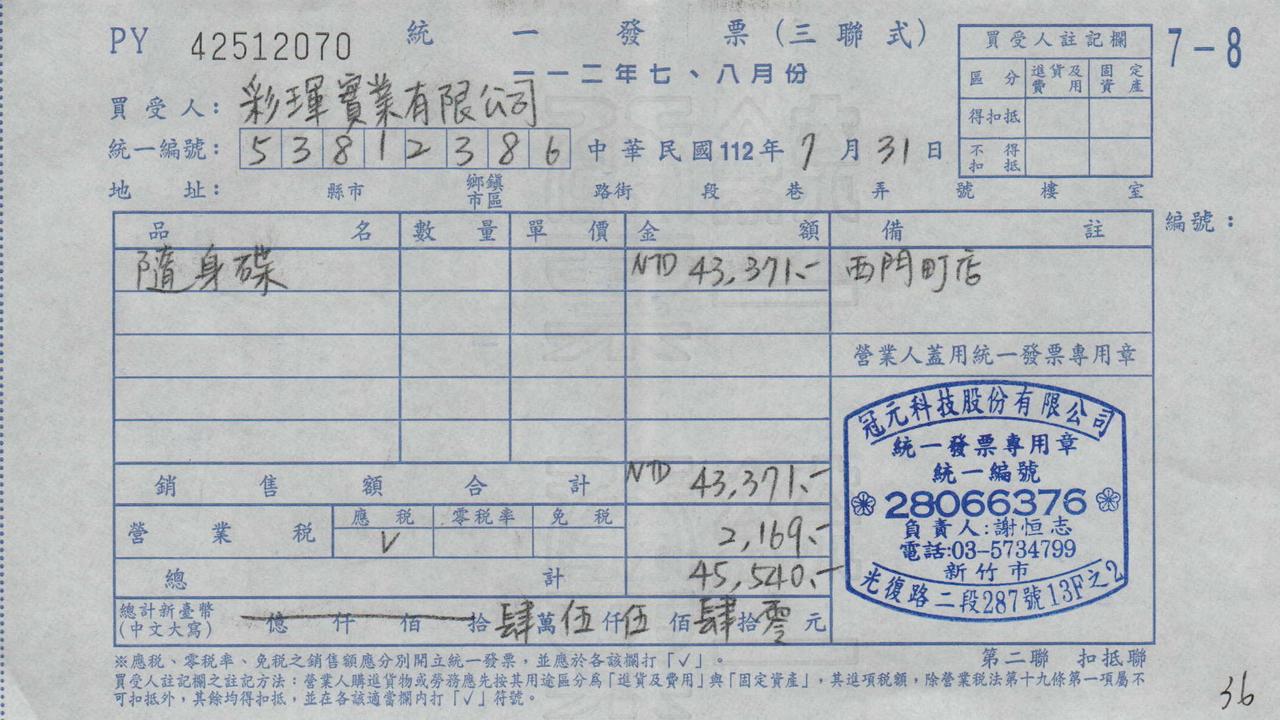 PY 42512070 統一發票(三聯式)
一一二年七、八月份
7-8
買受人註記欄
區分 進貨及費用 固定資產
得扣抵
不得扣抵
買受人: 彩琿實業有限公司
統一編號: 53812386 中華民國112年7月31日
地址: 縣市 鄉鎮市區 路街 段 巷 弄 號 樓 室
品名 數量 單價 金額 備註 編號:
隨身碟 NTD 43,371.- 西門町店
營業人蓋用統一發票專用章
銷售額合計 NTD 43,371.-
營業稅 應稅 零稅率 免稅
V 2,169.-
總計 45,540.-
總計新臺幣(中文大寫) 億仟佰拾肆萬伍仟伍佰肆拾零元
冠元科技股份有限公司
統一發票專用章
統一編號
28066376
負責人:謝恒志
電話:03-5734799
新竹市
光復路二段287號13F之2
※應稅、零稅率、免稅之銷售額應分別開立統一發票,並應於各該欄打「√」。
第二聯 扣抵聯
買受人註記欄之註記方法:營業人購進貨物或勞務應先按其用途區分為「進貨及費用」與「固定資產」,其進項稅額,除營業稅法第十九條第一項屬不
可扣抵外,其餘均得扣抵,並在各該適當欄內打「√」符號。
36